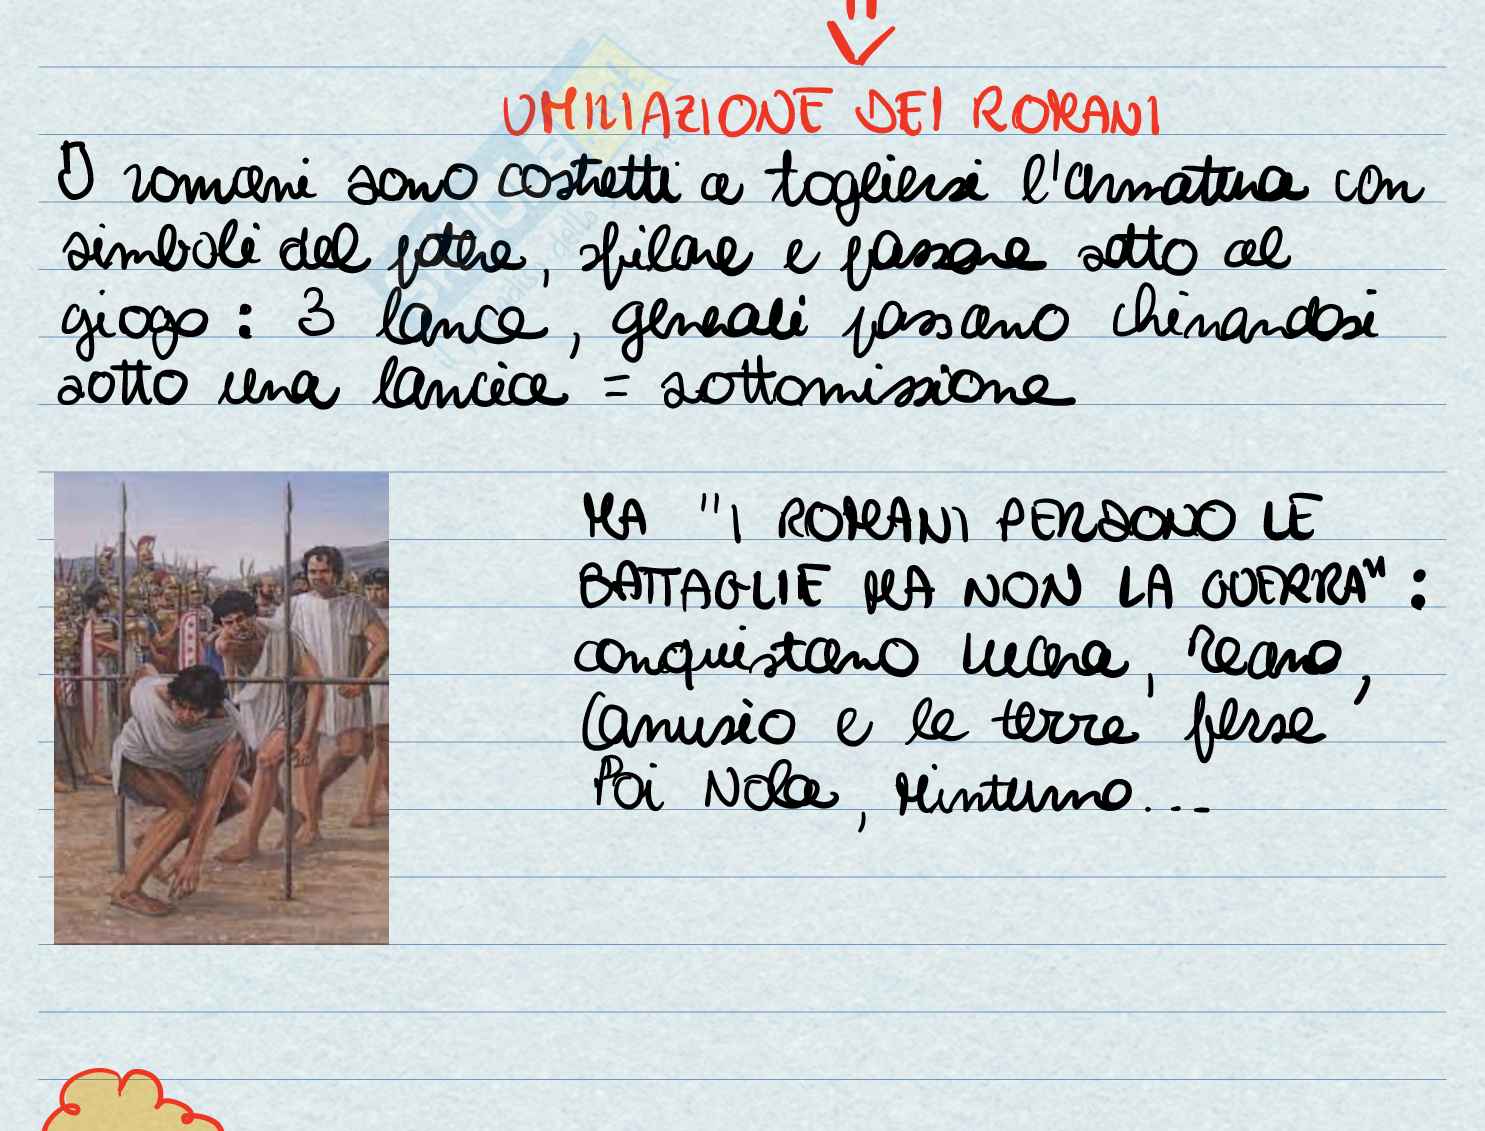 UMILIAZIONE DEI ROMANI
I romani sono costretti a togliersi l'armatura con
simboli del potere, sfilare e passare sotto al
giogo: 3 lance, generali passano chinandosi
sotto una lancia = sottomissione
MA "I ROMANI PERDONO LE
BATTAGLIE MA NON LA GUERRA":
conquistano Lucera, Teano,
Canusio e le terre perse
Poi Nola, Minturno...